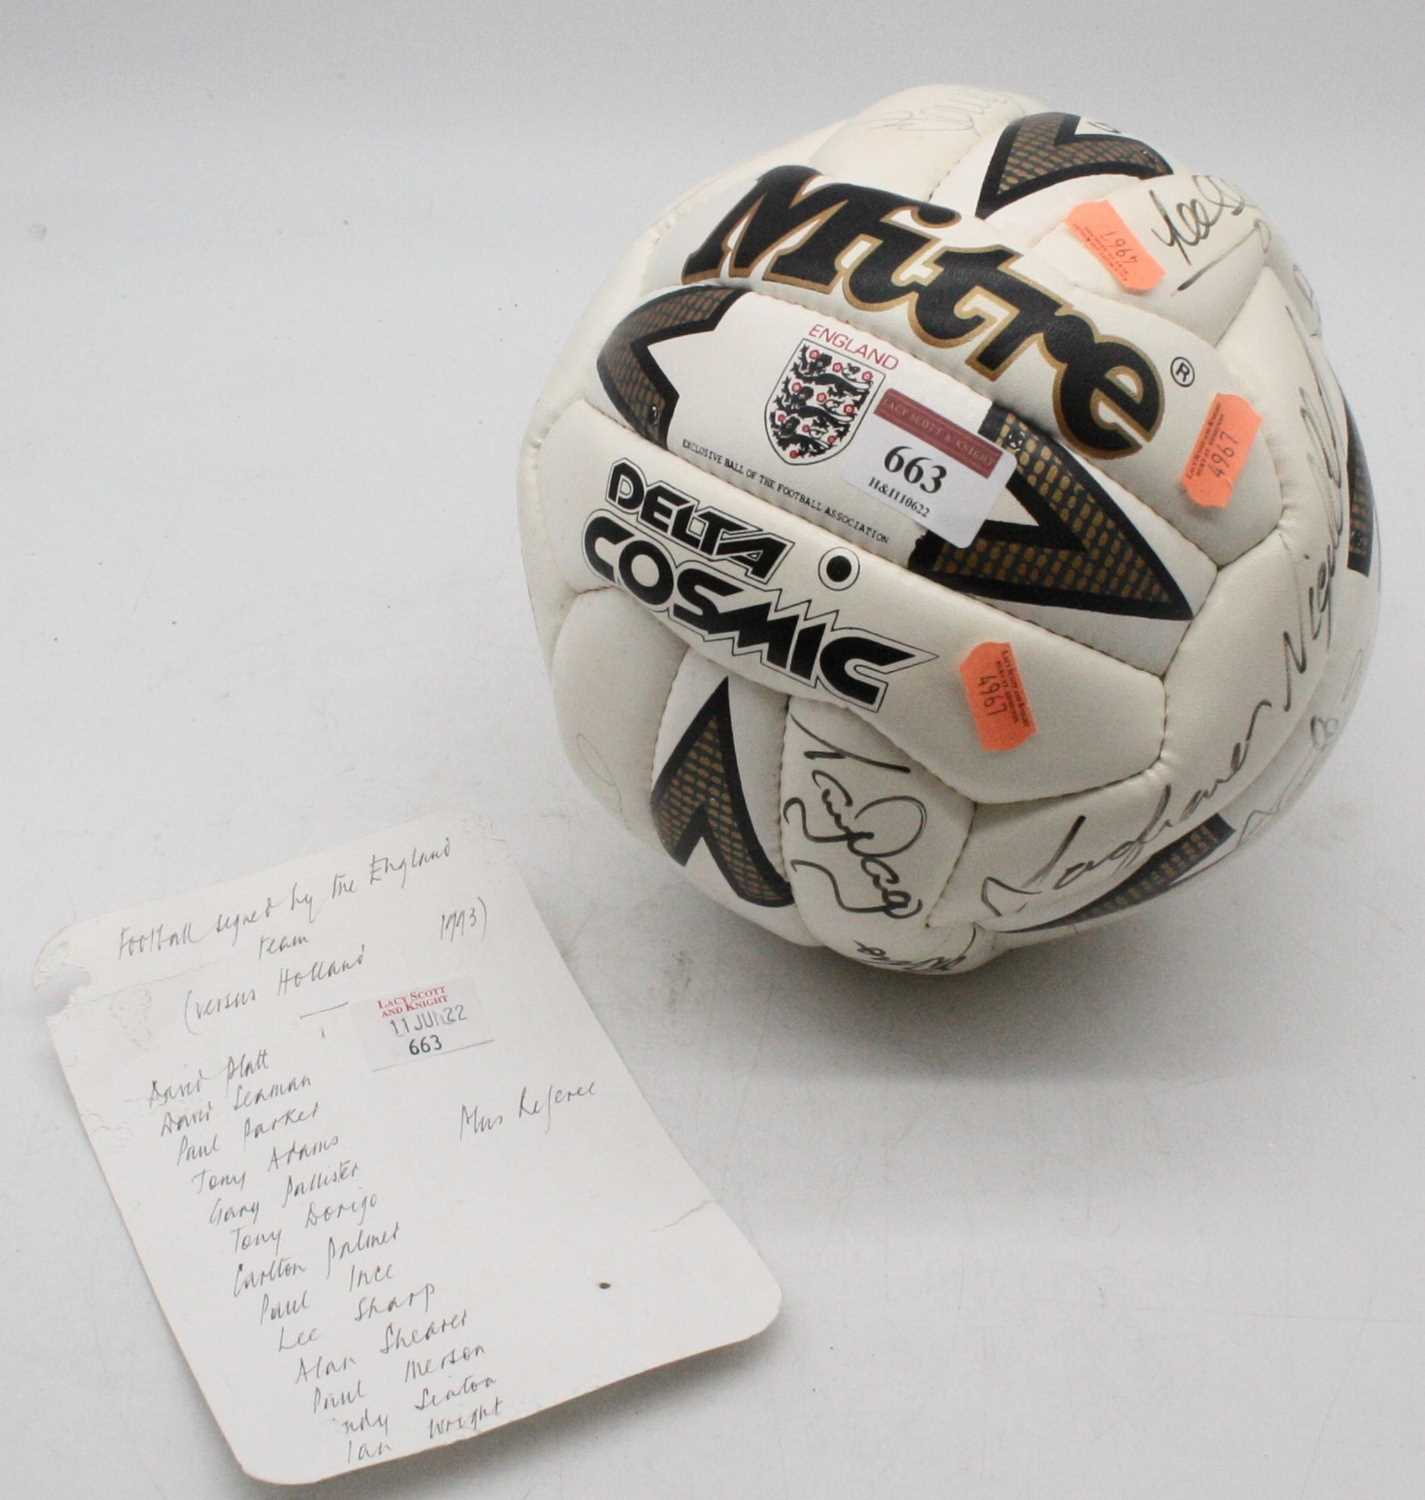 Mitre
®
ENGLAND
LACY SCOTT & KNIGHT
663
H&H110622
EXCLUSIVE BALL OF THE FOOTBALL ASSOCIATION
DELTA
COSMIC
4961
4967
4967
Football signed by the England
team
(versus Holland 1993)
LACY SCOTT
AND KNIGHT
11 JUN 22
663
David Platt
David Seaman
Paul Parker
Tony Adams
Gary Pallister
Tony Dorigo
Carlton Palmer
Paul Ince
Lee Sharp
Alan Shearer
Paul Merson
Andy Sinton
Ian Wright
Plus Referee